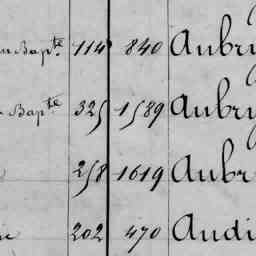 Bapte 114 840 Aubry
Bapte 325 1589 Aubry
258 1619 Aubr
202 470 Audi